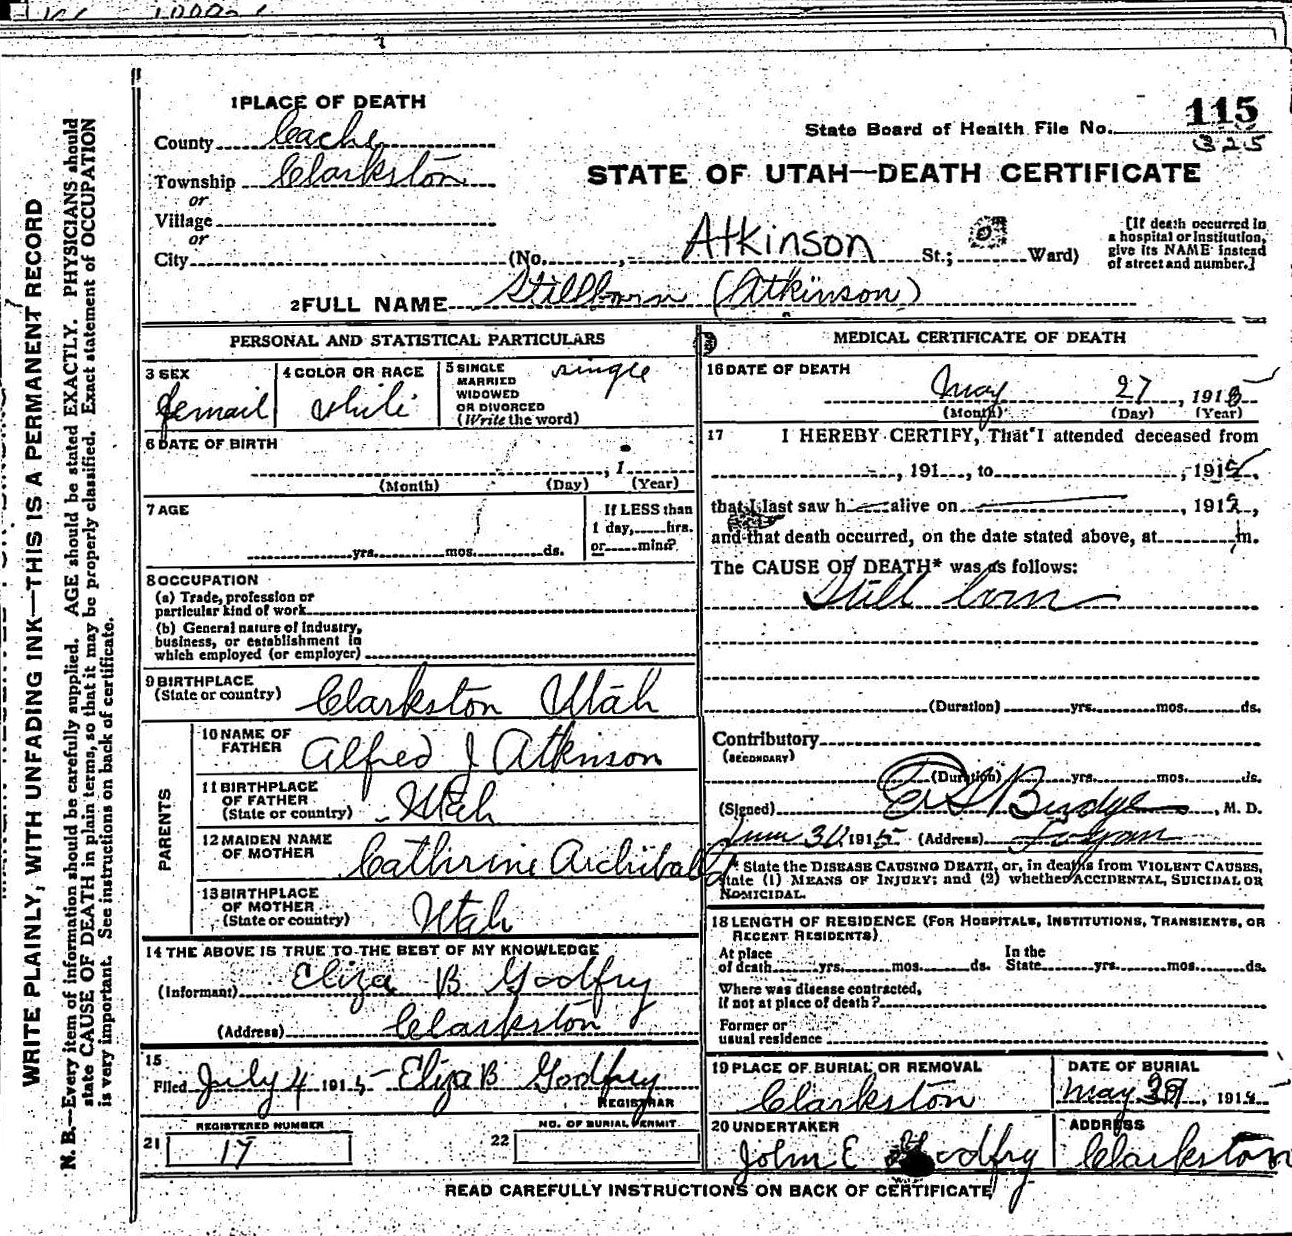 1 PLACE OF DEATH
County Cache
Township Clarkston
or
Village
or
City (No. , St.; Ward)
State Board of Health File No. 115
325
STATE OF UTAH—DEATH CERTIFICATE
Atkinson
[If death occurred in
a hospital or institution,
give its NAME instead
of street and number.]
2 FULL NAME Stillborn (Atkinson)
PERSONAL AND STATISTICAL PARTICULARS
3 SEX
Femail
4 COLOR OR RACE
white
5 SINGLE
MARRIED
WIDOWED
OR DIVORCED
(Write the word)
single
6 DATE OF BIRTH
, 1
(Month) (Day) (Year)
7 AGE
yrs. mos. ds.
If LESS than
1 day, hrs.
or min.?
8 OCCUPATION
(a) Trade, profession or
particular kind of work
(b) General nature of industry,
business, or establishment in
which employed (or employer)
9 BIRTHPLACE
(State or country) Clarkston Utah
PARENTS
10 NAME OF
FATHER Alfred J Atkinson
11 BIRTHPLACE
OF FATHER
(State or country) Utah
12 MAIDEN NAME
OF MOTHER Cathrine Archibald
13 BIRTHPLACE
OF MOTHER
(State or country) Utah
14 THE ABOVE IS TRUE TO THE BEST OF MY KNOWLEDGE
(Informant) Eliza B Godfry
(Address) Clarkston
15
Filed July 4 1915 Eliza B Godfry
REGISTRAR
21 REGISTERED NUMBER
17
22 NO. OF BURIAL PERMIT
MEDICAL CERTIFICATE OF DEATH
16 DATE OF DEATH
May 27, 1915
(Month) (Day) (Year)
17 I HEREBY CERTIFY, That I attended deceased from
, 191 , to , 1915,
that I last saw h alive on , 191 ,
and that death occurred, on the date stated above, at m.
The CAUSE OF DEATH* was as follows:
Still born
(Duration) yrs. mos. ds.
Contributory
(SECONDARY)
(Duration) yrs. mos. ds.
(Signed) Budge, M. D.
1915 (Address) Logan
* State the DISEASE CAUSING DEATH, or, in deaths from VIOLENT CAUSES,
state (1) MEANS OF INJURY; and (2) whether ACCIDENTAL, SUICIDAL OR
HOMICIDAL.
18 LENGTH OF RESIDENCE (FOR HOSPITALS, INSTITUTIONS, TRANSIENTS, OR
RECENT RESIDENTS)
At place
of death yrs. mos. ds.
In the
State yrs. mos. ds.
Where was disease contracted,
if not at place of death?
Former or
usual residence
19 PLACE OF BURIAL OR REMOVAL
Clarkston
DATE OF BURIAL
May , 191
20 UNDERTAKER
John E Godfry
ADDRESS
Clarkston
READ CAREFULLY INSTRUCTIONS ON BACK OF CERTIFICATE
WRITE PLAINLY, WITH UNFADING INK—THIS IS A PERMANENT RECORD
N. B.—Every item of information should be carefully supplied. AGE should be stated EXACTLY. PHYSICIANS should
state CAUSE OF DEATH in plain terms, so that it may be properly classified. Exact statement of OCCUPATION
is very important. See instructions on back of certificate.